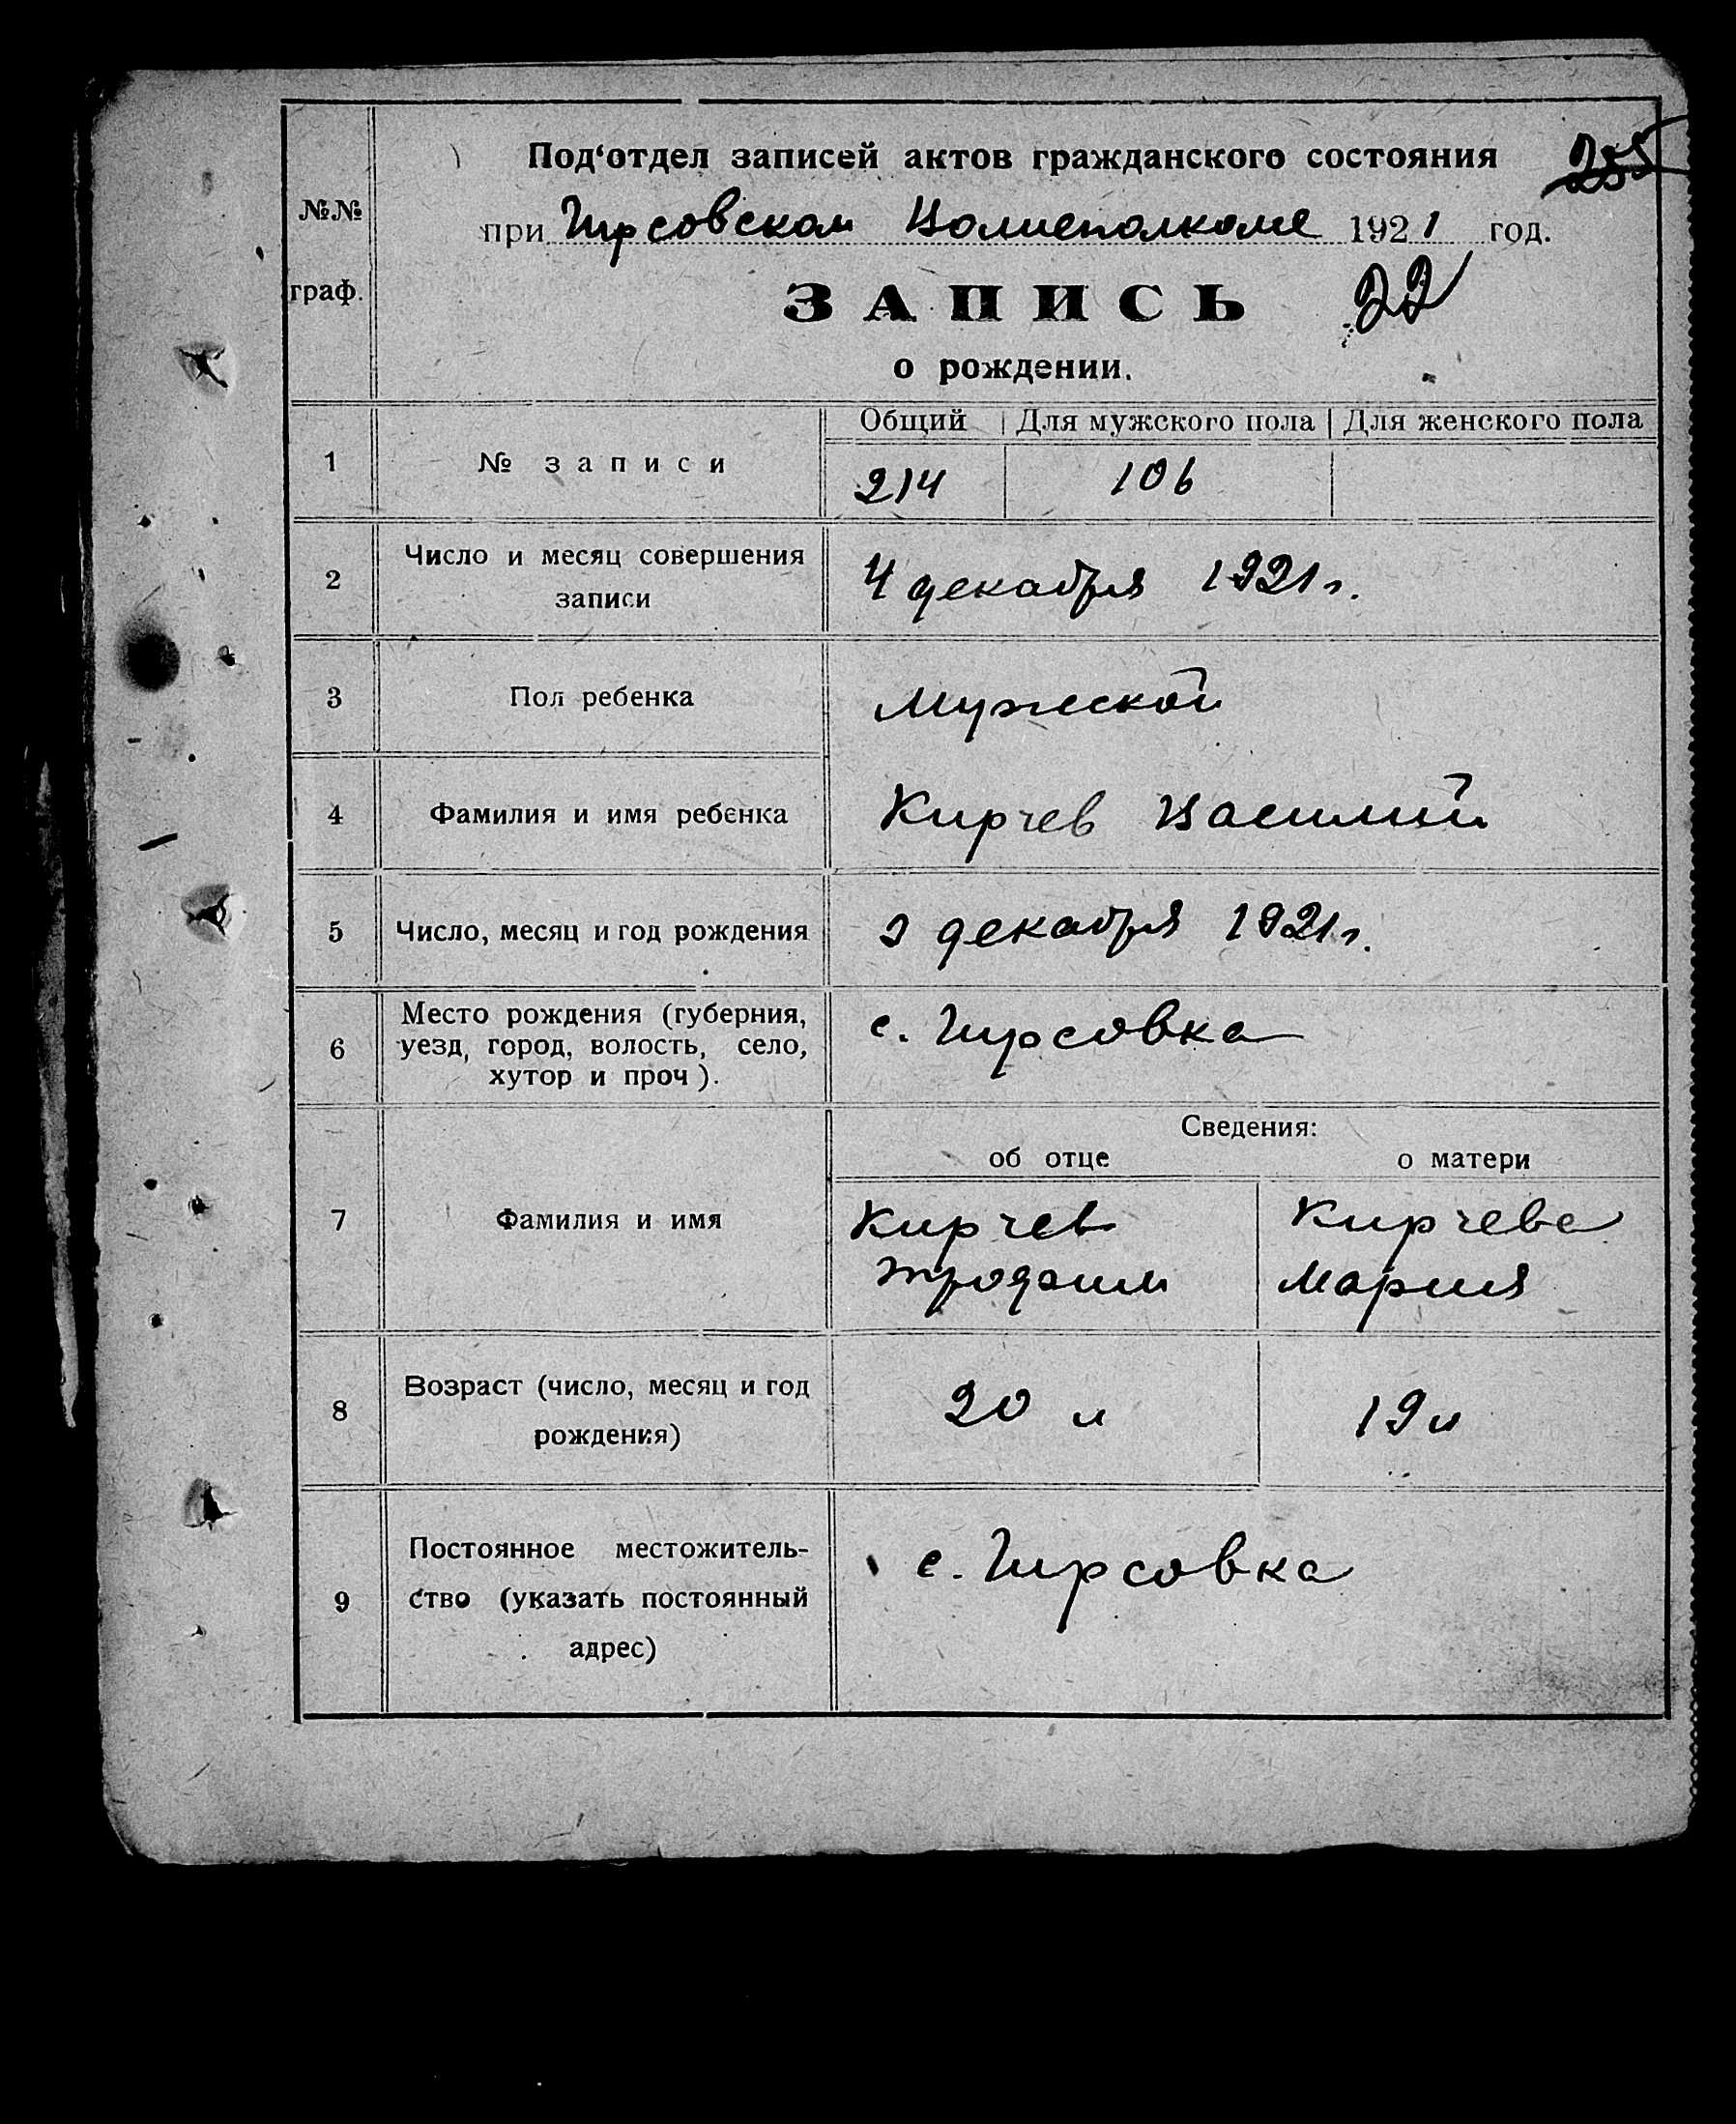 Под‘отдел записей актов гражданского состояния
255
при Гирсовском Волисполкоме 1921 год.
№№
граф.
ЗАПИСЬ
22
о рождении.
Общий Для мужского пола Для женского пола
1 № записи 214 106
2 Число и месяц совершения записи 4 декабря 1921 г.
3 Пол ребенка Мужской
4 Фамилия и имя ребенка Кирчев Василий
5 Число, месяц и год рождения 2 декабря 1921 г.
6 Место рождения (губерния,
уезд, город, волость, село,
хутор и проч).
с. Гирсовка
Сведения:
об отце о матери
7 Фамилия и имя
Кирчев Кирчева
Мария
8 Возраст (число, месяц и год
рождения)
20 л 19 л
9 Постоянное местожитель-
ство (указать постоянный
адрес)
с. Гирсовка